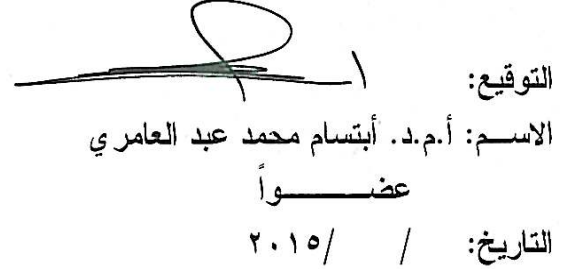 التوقيع:
الاســم: أ.م.د. أبتسام محمد عبد العامري
عضــــــــواً
التاريخ: / /٢٠١٥